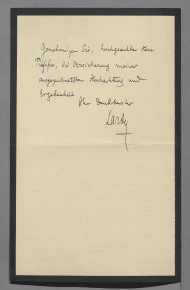 Genehmigen Sie, hochgeachter Herr
die Versicherung meiner
ausgezeichnetsten Hochachtung und
Ergebenheit
Ihr Dankbarster
Lardy